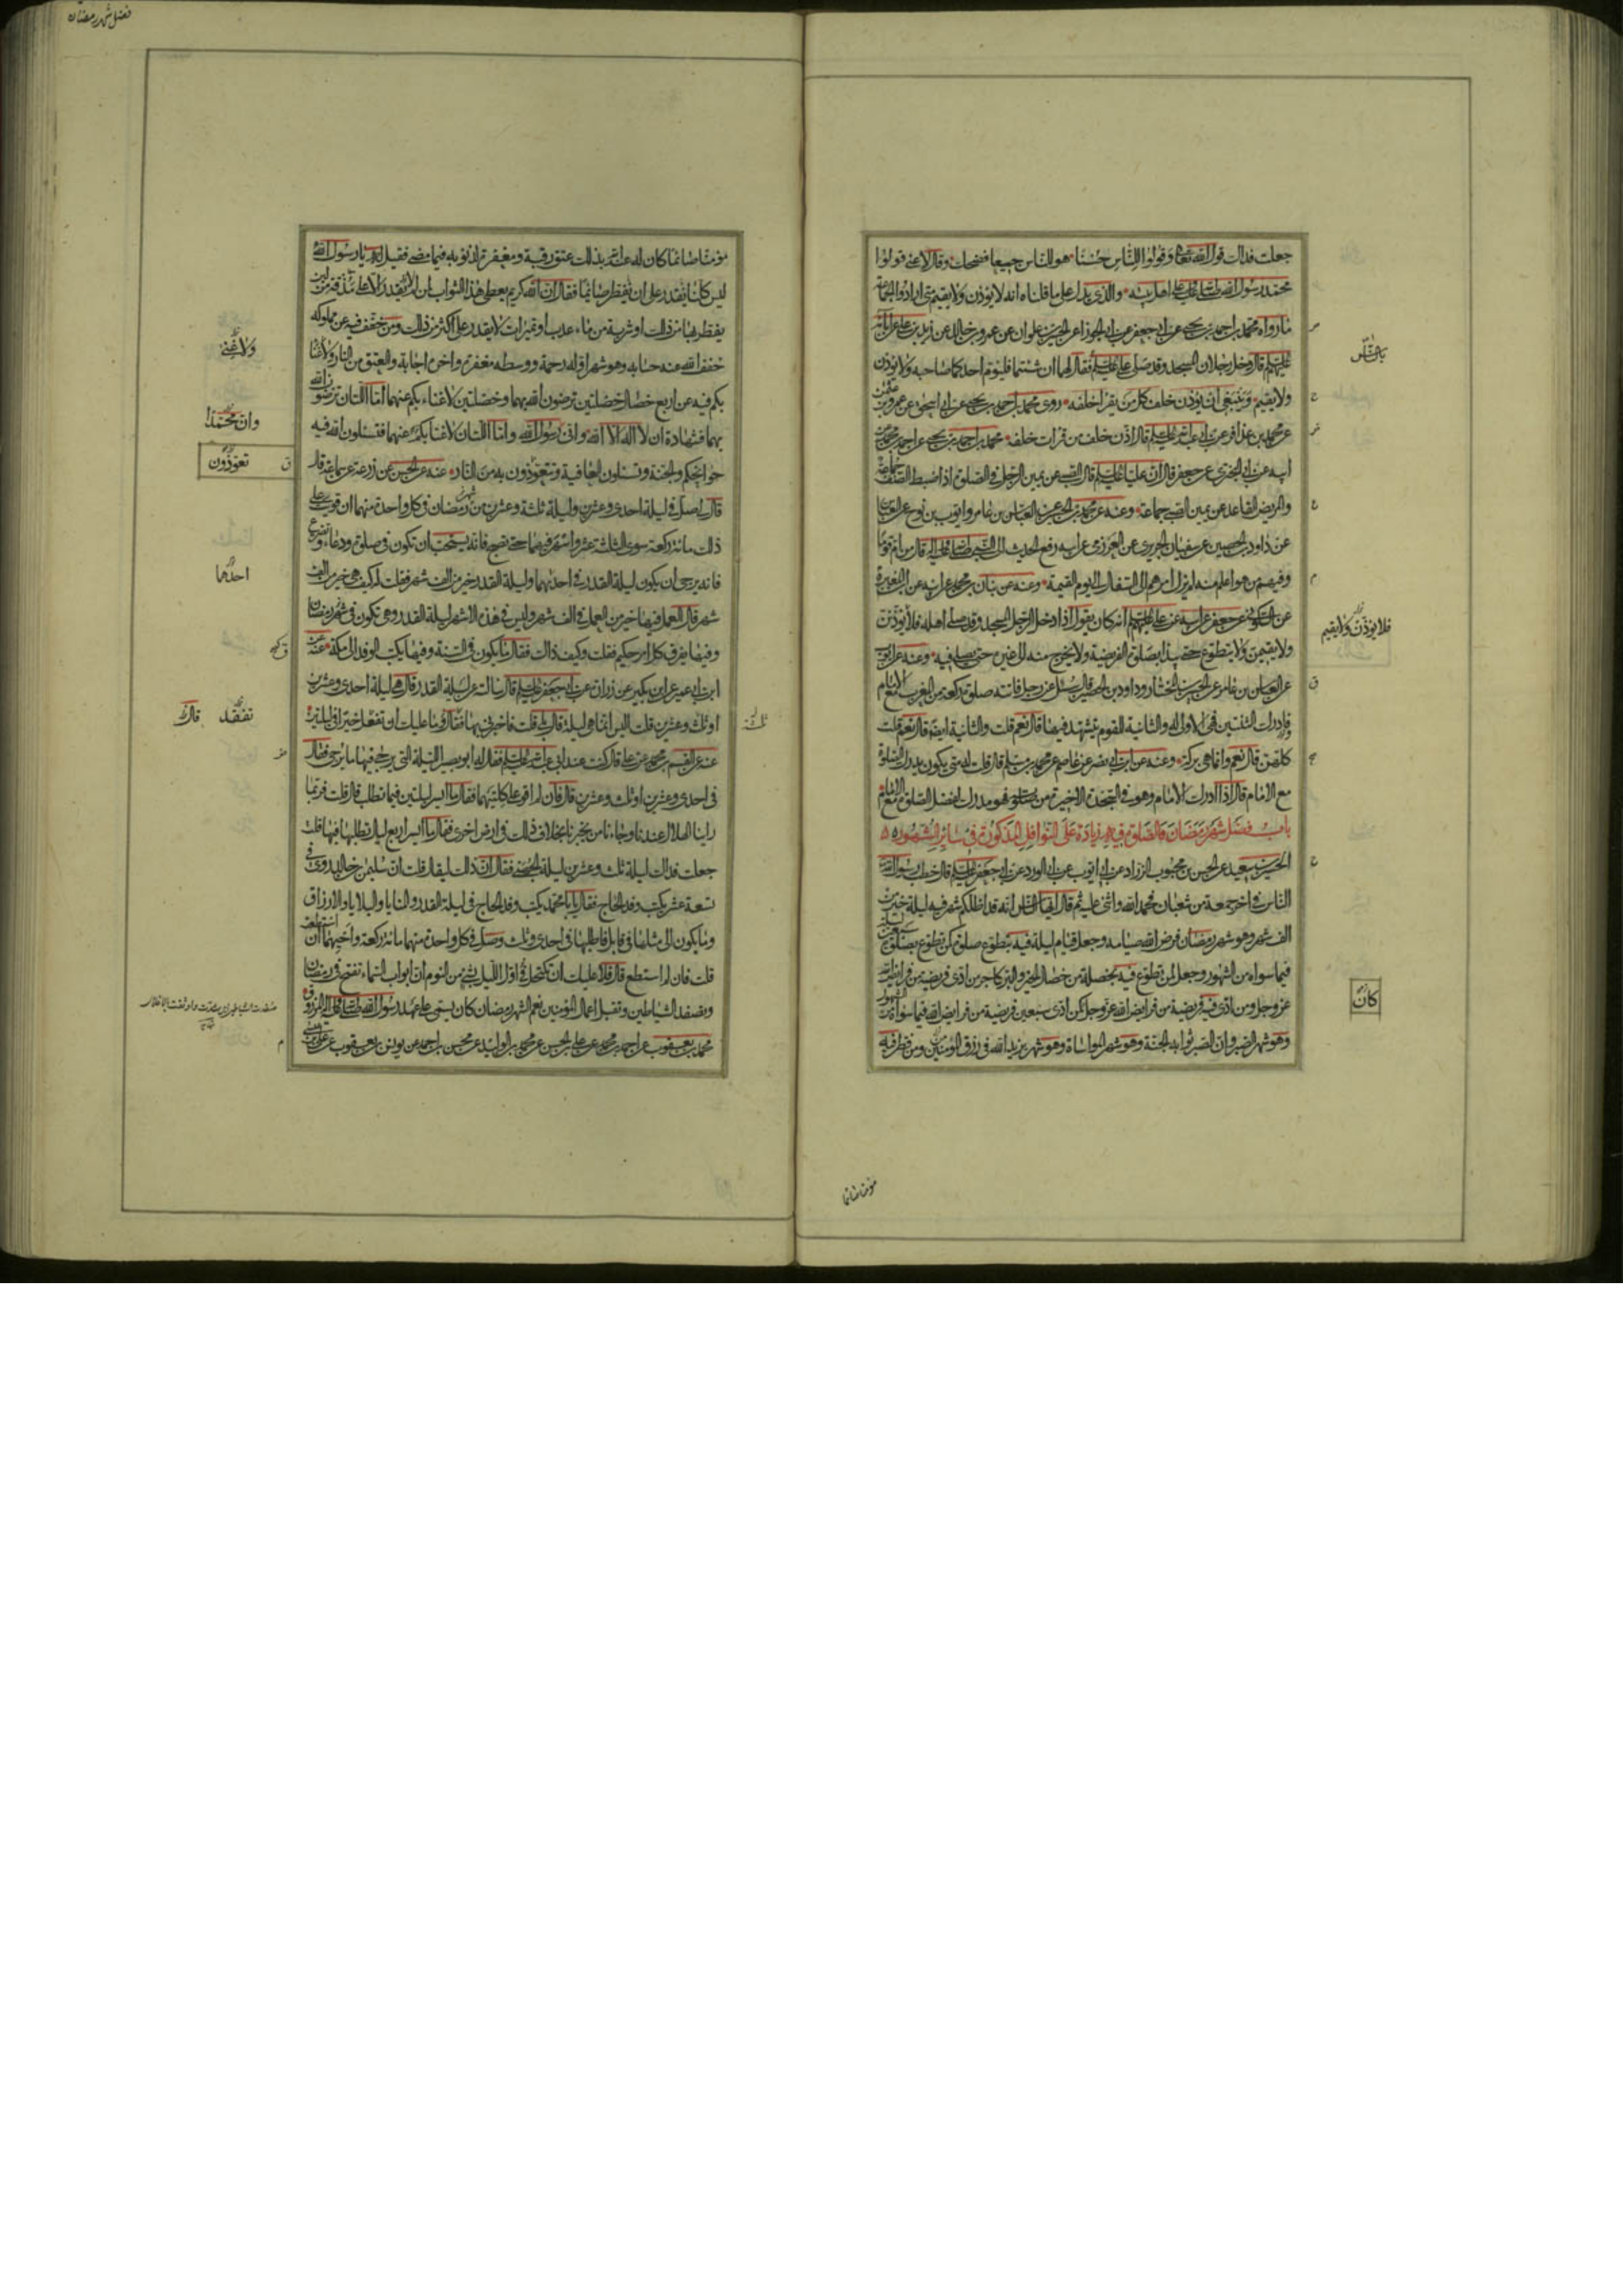 جعلت فداك قول الله تعالى وقولوا للناس حسنا هو للناس جميعا فضحك وقال لا عنى قولوا
محمد رسول الله صلى الله عليه وعلى اهل بيته والذى يدل على ما قلناه انه لا يؤذن ولا يقيم متى ارادوا الجماعة
ما رواه محمد بن احمد بن يحيى عن ابى جعفر عن ابى الجوزاء عن الحسين بن علوان عن عمرو بن خالد عن زيد بن على عن آبائه
عليهم السلم قال دخل رجلان المسجد وقد صلى على عليه السلم فقال لهما ان شئتما فليؤم احدكما صاحبه ولا يؤذن
ولا يقيم وينبغى ان يؤذن خلف كل من يقرا خلفه روى محمد بن احمد بن يحيى عن ابى اسحق عن عمرو بن عثمن
عن محمد بن عذافر عن ابى عبد الله عليه السلم قال اذن خلف من قرات خلفه محمد بن احمد بن يحيى عن احمد بن محمد عن
ابيه عن ابى البخترى عن جعفر قال ان عليا عليه السلم قال الصبى عن يمين الرجل فى الصلوة اذا ضبط الصف جماعة
والمريض القاعد عن يمين الصبى جماعة وعنه عن محمد بن الحسين عن العباس بن عامر وايوب بن نوح عن العباس
عن داود بن الحسين عن سفيان الجريرى عن العرزمى عن ابيه رفع الحديث الى النبى صلى الله عليه واله قال من ام قوما
وفيهم من هو اعلم منه لم يزل امرهم الى السفال الى يوم القيمة وعنه عن بنان بن محمد عن ابيه عن ابن المغيرة
عن السكونى عن جعفر عن ابيه عن على عليهم السلم انه كان يقول اذا دخل الرجل المسجد وقد صلى اهله فلا يؤذنن
ولا يقيمن ولا يتطوع حتى يبدا بصلوة الفريضة ولا يخرج منه الى غيره حتى يصلى فيه وعنه عن ايوب
عن العباس بن عامر عن الحسين بن المختار وداود بن الحصين قال سئل عن رجل فاتته صلوة ركعة من المغرب مع الامام
وادرك الثنتين فهى الاولى له والثانية للقوم يتشهد فيها قال نعم قلت والثانية ايضا قال نعم قلت
كلهن قال نعم وانما هى بركة وعنه عن ابن ابى نصر عن عاصم عن محمد بن مسلم قال قلت له متى يكون يدرك الصلوة
مع الامام قال اذا ادرك الامام وهو فى السجدة الاخيرة من صلوته فهو مدرك لفضل الصلوة مع الامام
باب فضل شهر رمضان والصلوة فيه زيادة على النوافل المذكورة فى سائر الشهور
الحسين بن سعيد عن الحسن بن محبوب الزراد عن ابى ايوب عن ابى الورد عن ابى جعفر عليه السلم قال خطب رسول الله
الناس فى اخر جمعة من شعبان فحمد الله واثنى عليه ثم قال ايها الناس انه قد اظلكم شهر فيه ليلة خير من
الف شهر وهو شهر رمضان فرض الله صيامه وجعل قيام ليلة فيه بتطوع صلوة كمن تطوع بصلوة سبعين ليلة
فيما سواه من الشهور وجعل لمن تطوع فيه بخصلة من خصال الخير والبر كاجر من ادى فريضة من فرائض الله
عز وجل ومن ادى فيه فريضة من فرايض الله عز وجل كمن ادى سبعين فريضة من فرايض الله فيما سواه من الشهور
وهو شهر الصبر وان الصبر ثوابه الجنة وهو شهر المواساة وهو شهر يزيد الله فى رزق المؤمنين ومن فطر فيه
يا ايها الناس
فلا يؤذنن ولا يقيم
كان
مؤمنا صائما
فضل شهر رمضان
مؤمنا صائما كان له عند الله بذلك عتق رقبة ومغفرة لذنوبه فيما مضى فقيل له يا رسول الله
ليس كلنا يقدر على ان يفطر صائما فقال ان الله كريم يعطى هذا الثواب لمن لم يقدر الا على مذقة من لبن
يفطر بها من ذلك او شربة من ماء عذب او تميرات لا يقدر على اكثر من ذلك ومن خفف فيه عن مملوكه
خفف الله عنه حسابه وهو شهر اوله رحمة ووسطه مغفرة واخره اجابة والعتق من النار ولا غنا
بكم فيه عن اربع خصال خصلتين ترضون الله بهما وخصلتين لا غناء بكم عنهما اما اللتان ترضون الله
بهما فشهادة ان لا اله الا الله وانى رسول الله واما اللتان لا غنا بكم عنهما فتسئلون الله فيه
حوائجكم والجنة وتسئلون العافية وتتعوذون به من النار عنه عن الحسن عن زرعة عن سماعة قال
قال لى صل فى ليلة احدى وعشرين وليلة ثلثة وعشرين من شهر رمضان فى كل واحدة منهما ان قويت على
ذلك مائة ركعة سوى الثلثة عشر واسهر فيهما حتى تصبح فانه يستحب ان تكون فى صلوة ودعاء وتضرع
فانه يرجى ان يكون ليلة القدر فى احدهما وليلة القدر خير من الف شهر فقلت له كيف هى خير من الف
شهر قال العمل فيها خير من العمل فى الف شهر وليس فى هذه الاشهر ليلة القدر وهى تكون فى شهر رمضان
وفيها يفرق كل امر حكيم فقلت وكيف ذاك فقال ما يكون فى السنة وفيها يكتب الوفد الى مكة عنه عن
ابن ابى عمير عن ابن بكير عن زرارة عن ابى جعفر عليه السلم قال سالته عن ليلة القدر قال هى ليلة احدى وعشرين
او ثلث وعشرين قلت اليس انما هى ليلة قال بلى قلت فاخبرنى بها فقال وما عليك ان تفعل خيرا فى ليلتين
عنه عن القسم بن محمد عن على قال كنت عند ابى عبد الله عليه السلم فقال له ابو بصير الليلة التى يرجى فيها ما يرجى فقال
فى احدى وعشرين او ثلث وعشرين قال فان لم اقو على كلتيهما فقال ما ايسر ليلتين فيما تطلب قال قلت فربما
راينا الهلال عندنا وجاءنا من يخبرنا بخلاف ذلك فى ارض اخرى فقال ما ايسر اربع ليال تطلبها فيها قلت
جعلت فداك ليلة ثلث وعشرين ليلة الجهنى فقال ان ذلك ليقال قلت ان سليمن بن خالد روى فى
تسعة عشر يكتب وفد الحاج فقال يا با محمد يكتب وفد الحاج فى ليلة القدر والمنايا والبلايا والارزاق
وما يكون الى مثلها فى قابل فاطلبها فى احدى وثلث وصل فى كل واحدة منهما مائة ركعة واحيهما ان استطعت
قلت فان لم استطع قال فلا عليك ان تكتحل فى اول الليل بشئ من النوم ان ابواب السماء تفتح فى رمضان
وتصفد الشياطين وتقبل اعمال المؤمنين نعم الشهر رمضان كان يسمى على عهد رسول الله صلى الله عليه واله المرزوق
محمد بن يعقوب عن احمد بن محمد عن على بن الحسن عن محمد بن الوليد عن محسن بن احمد عن يونس بن يعقوب عن على بن عيسى
ولا غنى
وان محمدا
تعوذون
احدهما
تفقد
قال
ثلثة